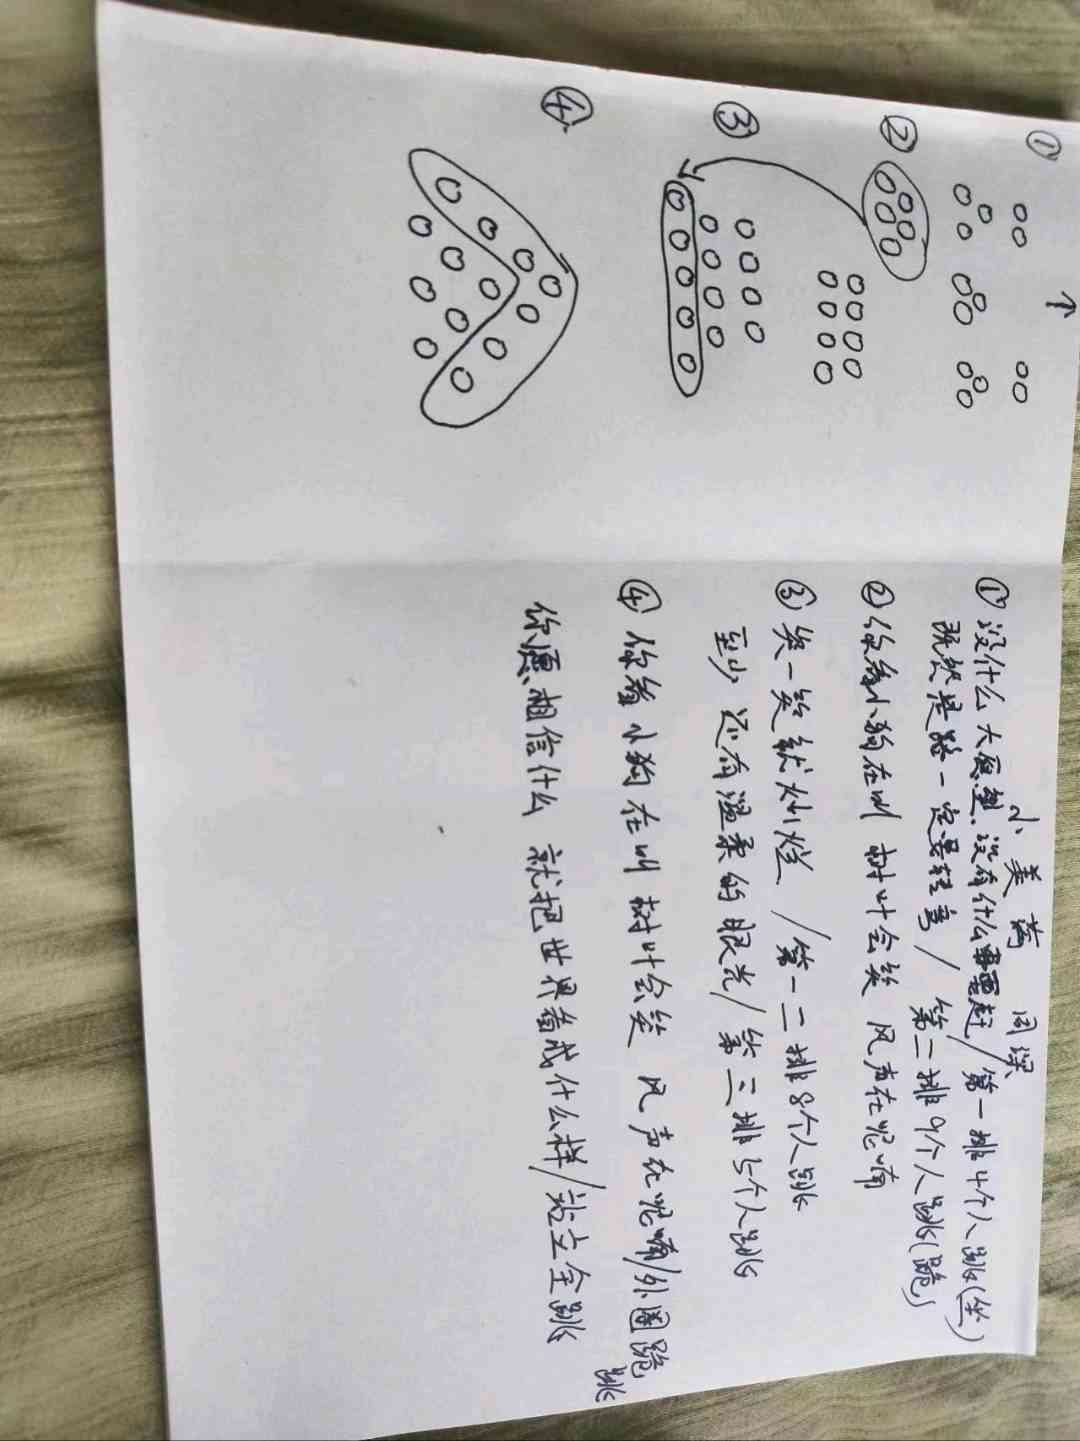 ①
②
③
④
小美满 周深
① 没什么大愿望 没有什么事要赶/第一排4个人跳(坐)
既然是路一定要轻弯/第二排9个人跳(跪)
② 你看小狗在叫 树叶会笑 风声在呢喃
③ 笑一笑就灿烂 /第一二排8个人跳
至少 还有温柔的眼光/第三排5个人跳
④ 你看小狗在叫 树叶会笑 风声在呢喃/外圈跪跳
你愿相信什么 就把世界看成什么样/站立全跳